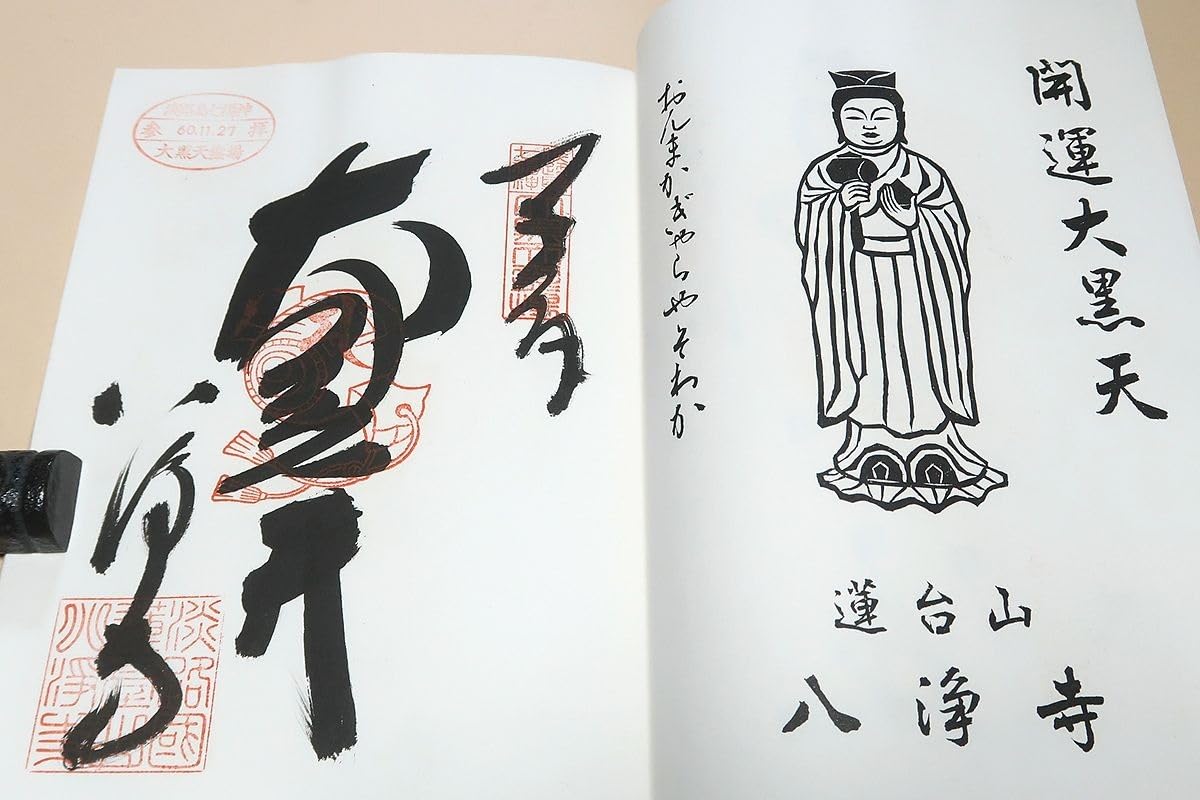 開運大黒天
おんまかぎやらやそわか
蓮台山
八浄寺
大黒天
八浄寺
淡路島七福神
参 60.11.27 拝
大黒天霊場